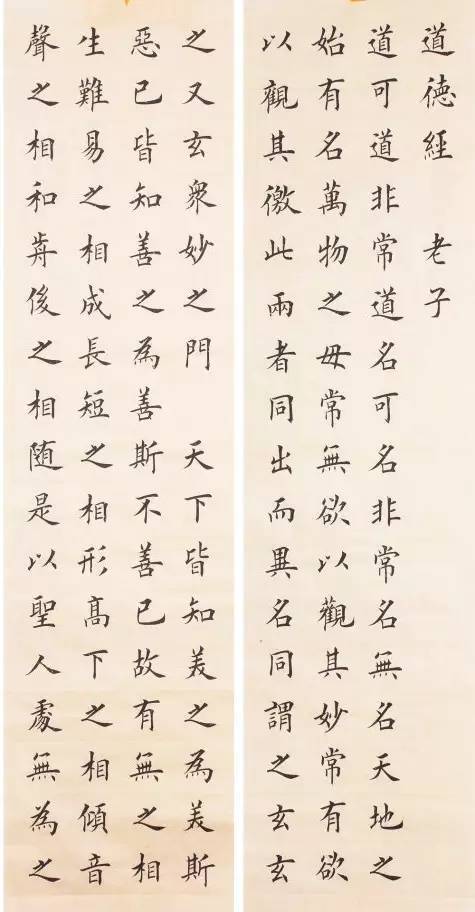 道德經 老子
道可道非常道名可名非常名無名天地之
始有名萬物之母常無欲以觀其妙常有欲
以觀其徼此兩者同出而異名同謂之玄玄
之又玄衆妙之門 天下皆知美之為美斯
惡已皆知善之為善斯不善已故有無之相
生難易之相成長短之相形髙下之相傾音
聲之相和歬後之相随是以聖人處無為之